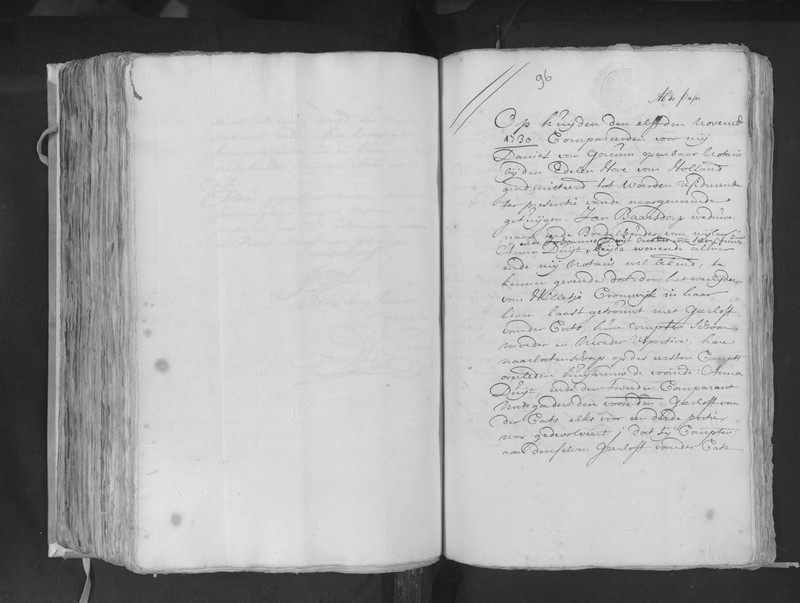 96
Op huijden den elfden Novemb
1730 Compareerden voor mij
Daniel van Gorcum openbaar Notaris
bij den Edelen Hove van Holland
geadmitteerd tot Woerden residerende
ter presentie vande naargenoemde
getuijgen. Jan Baansdorp weduwn.
naar ende Boedelhouder van wijlen
Anna Duijt, beijde wonende alhier
ende mij Notaris wel bekend, te
kennen gevende dat door het overlijden
van Willetje Cromwijk in haar
leven laast getrouwt met Gerloff
vander Cats, hun compten schoon
moeder en Moeder respective, hare
naarlatenschap op des eersten Compts
overleden huijsvrouw de voorn: Anna
Duijt, ende den tweeden Comparant
mitsgaders den voorn: Gerloff van
der Cats elks voor een darde portie
was gedevolveert, dat sij Compten
aan denselven Gerloff vander Cats